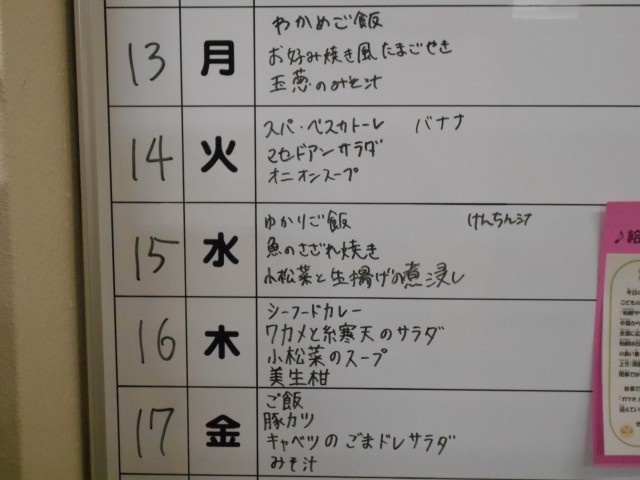 13 月 わかめご飯
お好み焼き風たまごやき
玉葱のみそ汁
14 火 スパ・ペスカトーレ バナナ
マセドアンサラダ
オニオンスープ
15 水 ゆかりご飯 けんちん汁
魚のさざれ焼き
小松菜と生揚げの煮浸し
16 木 シーフードカレー
ワカメと糸寒天のサラダ
小松菜のスープ
美生柑
17 金 ご飯
豚カツ
キャベツのごまドレサラダ
みそ汁
♪給